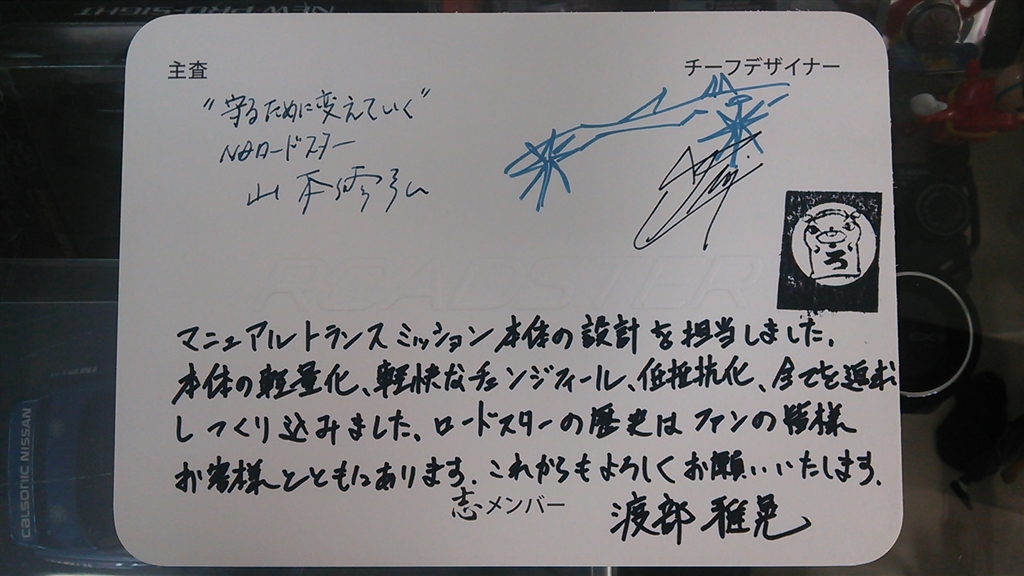 NEW PRO-SIGHT
主査
チーフデザイナー
"守るために変えていく"
NAロードスター
ROADSTER
ろ
マニュアルトランスミッション本体の設計を担当しました。
本体の軽量化、軽快なチェンジフィール、低抵抗化、全てを追求
しつくり込みました。ロードスターの歴史はファンの皆様
お客様とともにあります。これからもよろしくお願いいたします。
志メンバー
渡部 雅晃
CALSONIC NISSAN